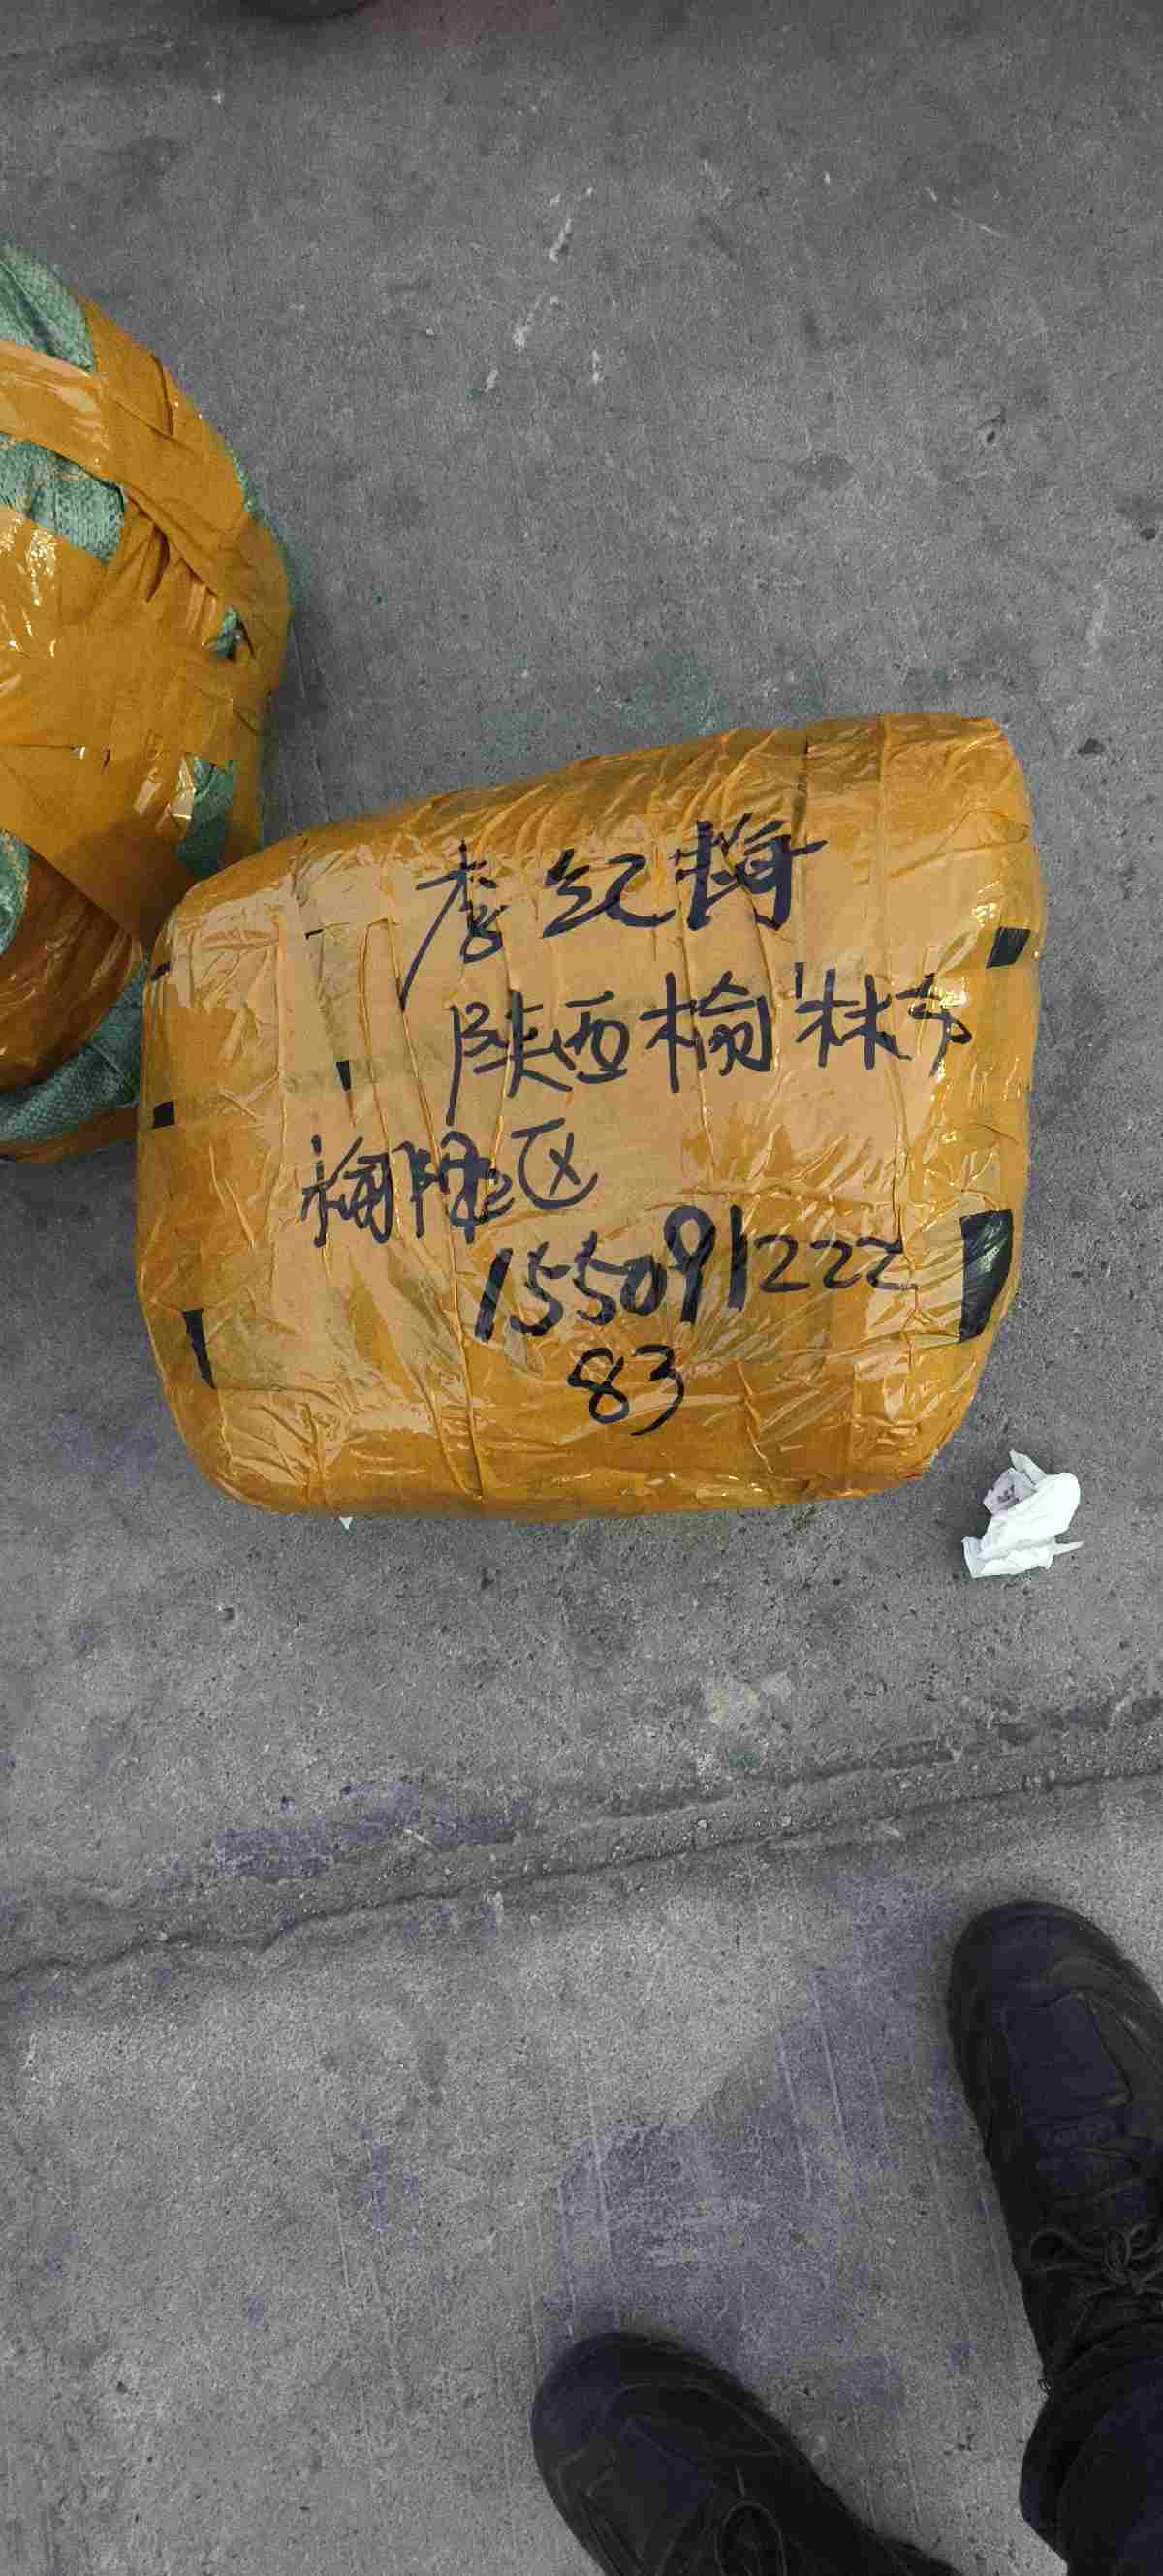 李红梅
陕西榆林市
榆阳区
155091222
83